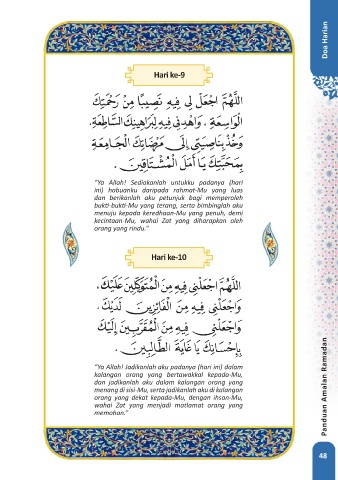 Doa Harian
Hari ke-9
اَللّٰهُمَّ اجْعَلْ لِي فِيهِ نَصِيبًا مِنْ رَحْمَتِكَ
الْوَاسِعَةِ ، وَاهْدِنِي فِيهِ لِبَرَاهِينِكَ السَّاطِعَةِ،
وَخُذْ بِنَاصِيَتِي إِلَى مَرْضَاتِكَ الْجَامِعَةِ
بِمَحَبَّتِكَ يَا أَمَلَ الْمُشْتَاقِينَ .
“Ya Allah! Sediakanlah untukku padanya (hari
ini) habuanku daripada rahmat-Mu yang luas
dan berikanlah aku petunjuk bagi memperoleh
bukti-bukti-Mu yang terang, serta bimbinglah aku
menuju kepada keredhaan-Mu yang penuh, demi
kecintaan-Mu, wahai Zat yang diharapkan oleh
orang yang rindu.”
Hari ke-10
اَللّٰهُمَّ اجْعَلْنِي فِيهِ مِنَ الْمُتَوَكِّلِينَ عَلَيْكَ ،
وَاجْعَلْنِي فِيهِ مِنَ الْفَائِزِينَ لَدَيْكَ ،
وَاجْعَلْنِي فِيهِ مِنَ الْمُقَرَّبِينَ إِلَيْكَ
بِإِحْسَانِكَ يَا غَايَةَ الطَّالِبِينَ .
“Ya Allah! Jadikanlah aku padanya (hari ini) dalam
kalangan orang yang bertawakkal kepada-Mu,
dan jadikanlah aku dalam kalangan orang yang
menang di sisi-Mu, serta jadikanlah aku di kalangan
orang yang dekat kepada-Mu, dengan ihsan-Mu,
wahai Zat yang menjadi matlamat orang yang
memohon.”
Panduan Amalan Ramadan
48